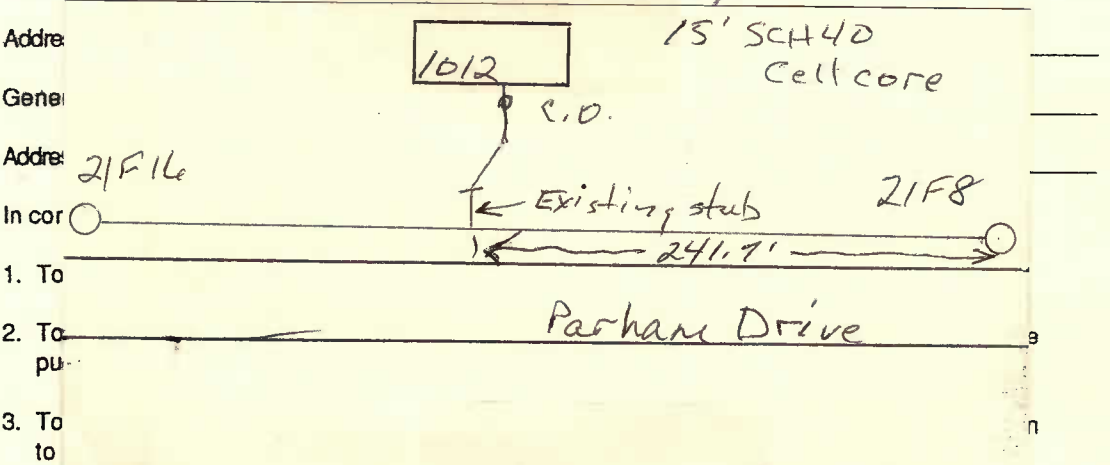 Addre
15' SCH40
1012
Cell core
Gene
C.O.
Addre
21F16
21F8
Existing stub
In cor
241.7'
1. To
Parham Drive
2. To
e
pu
3. To
n
to